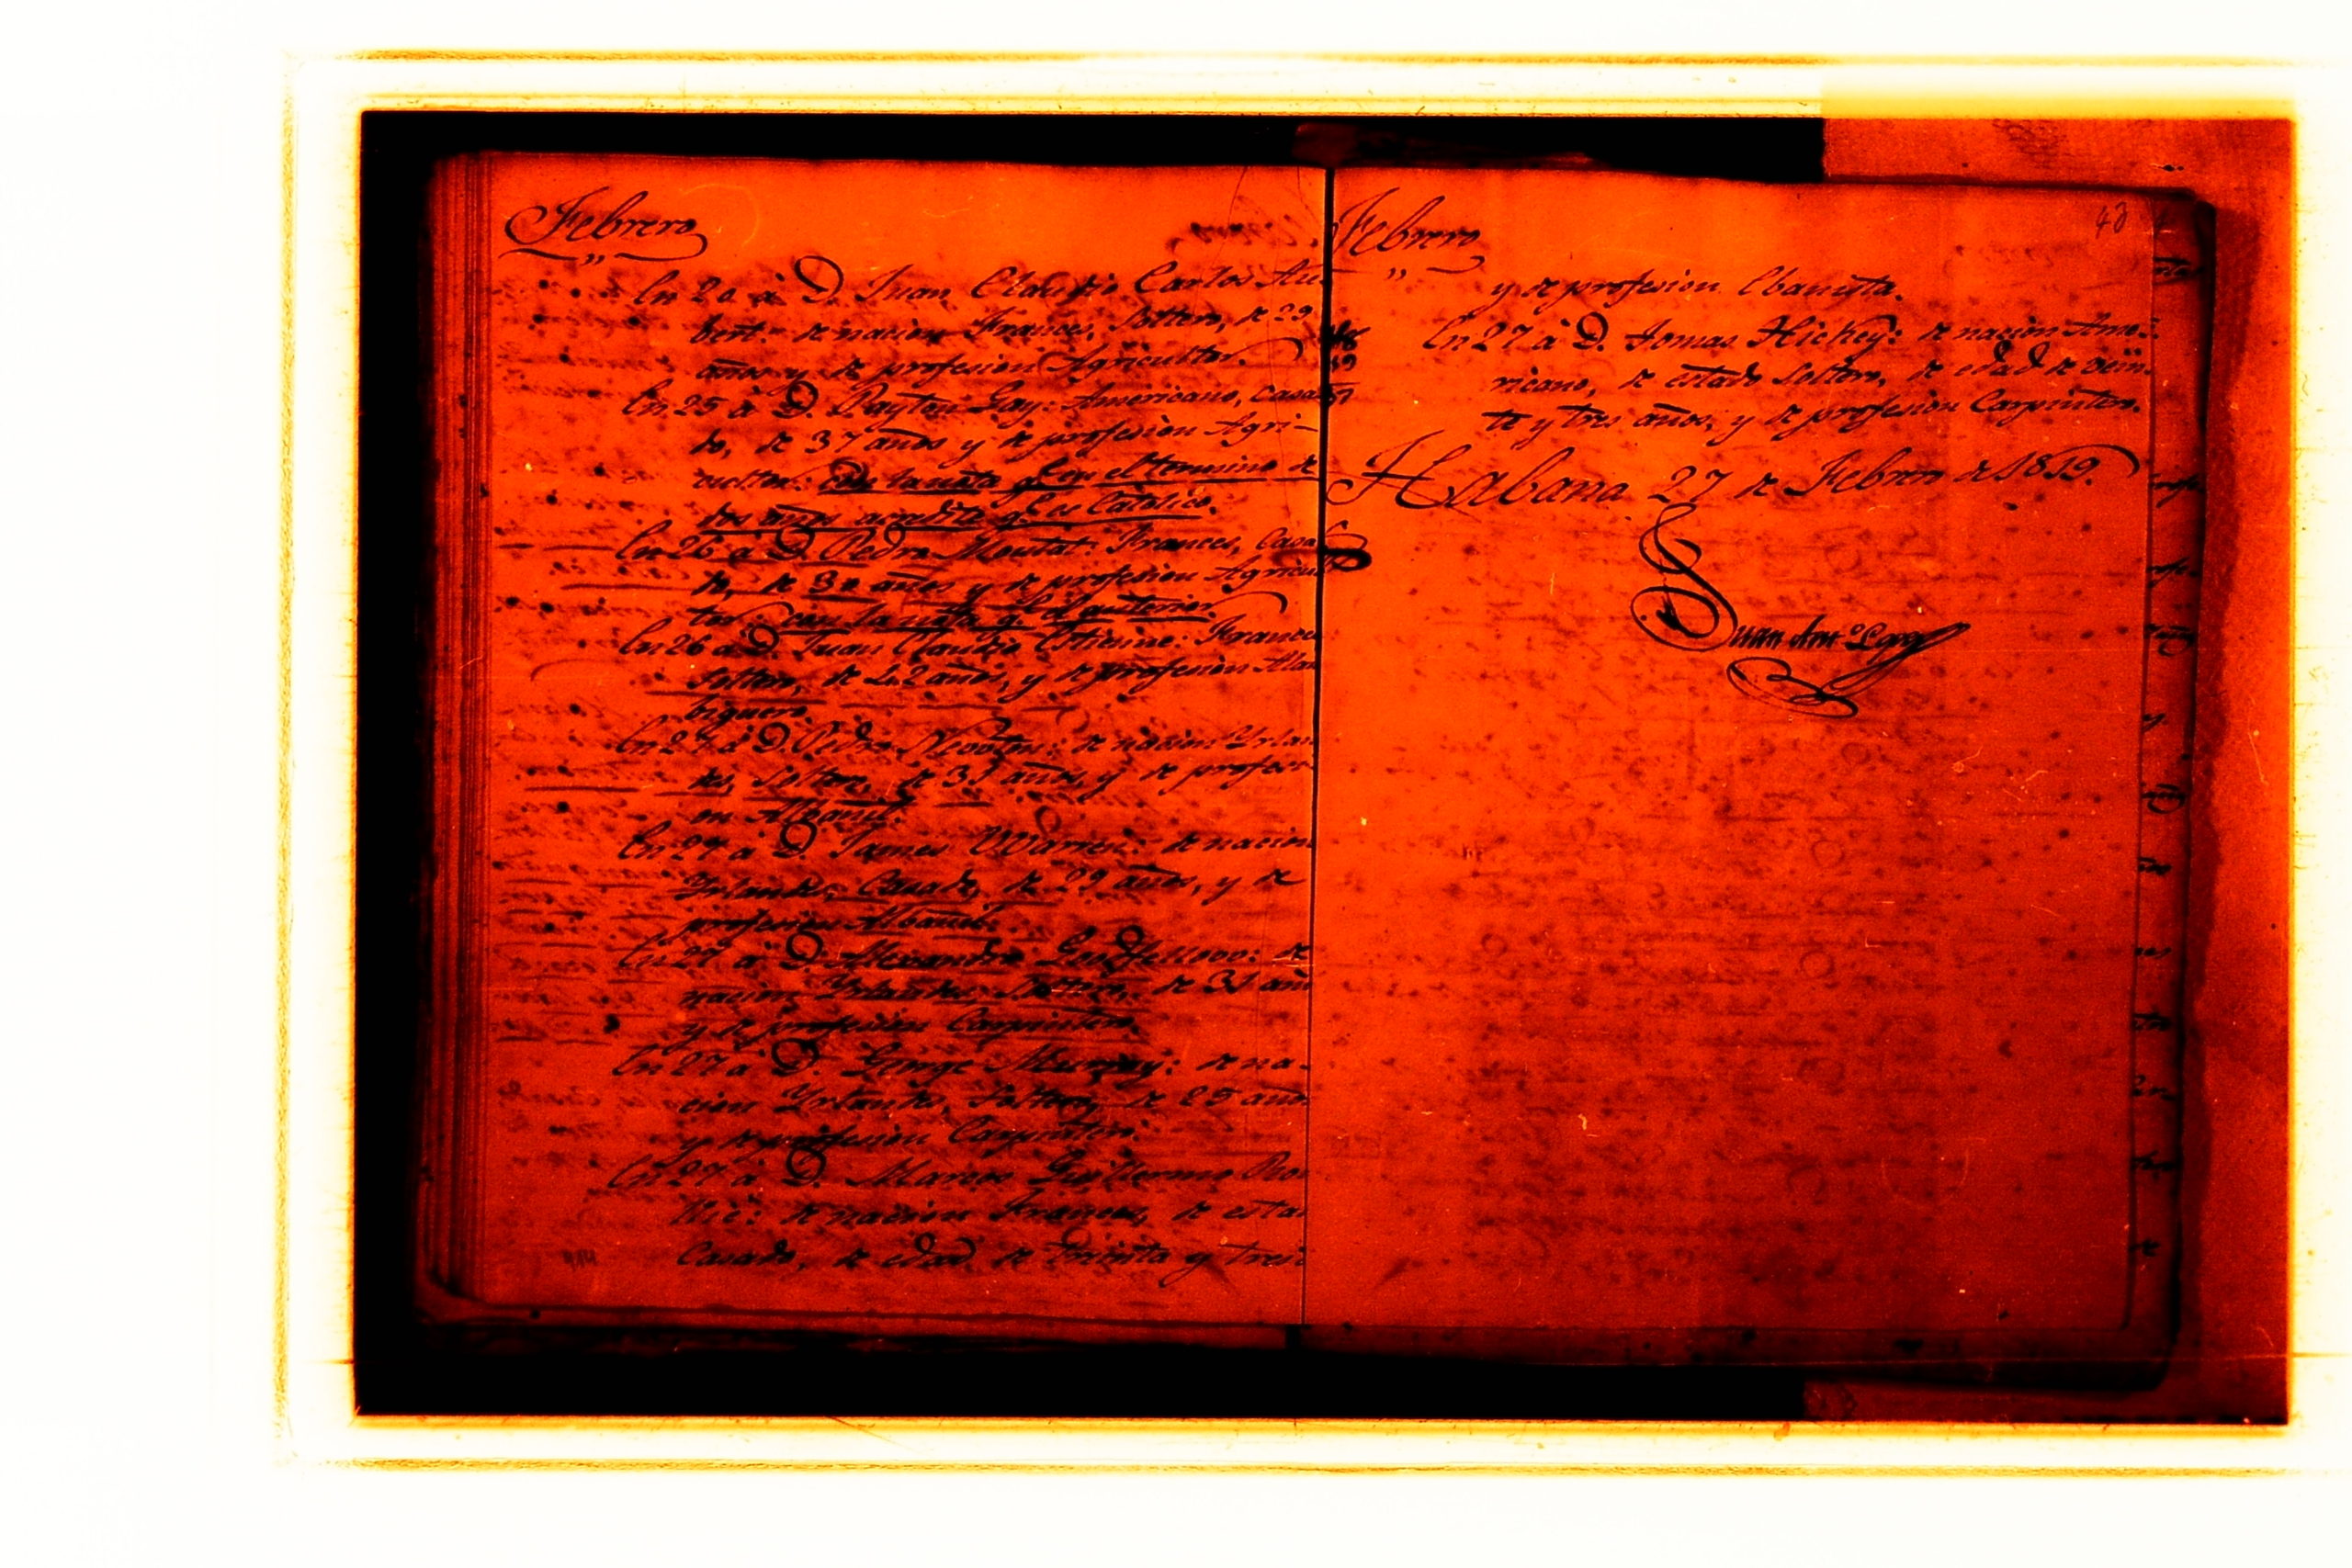 Febrero
En 20 à D. Juan Claudio Carlos Au-
bert: de nacion Frances, Soltero, de 29
años y de profesion Agricultor.
En 25 à D. Payton Gay: Americano, casa
do, de 37 años y de profesion Agri-
cultor: con la nota q.e en el termino de
dos años acredite q.e es Catolico.
En 26 a D. Pedro Moutat: Frances, Casa
do, de 30 años y de profesion Agricul
tor: con la nota q.e el anterior.
En 26 a D. Juan Claudio Etienne: Frances
Soltero, de 42 años, y de profesion Alam
biquero.
En 27 à D. Pedro: de nacion Yrlan
des, Soltero, de 31 años y de profesi-
on Albañil.
En 27 à D. James Warren: de nacion
Yrlandes, Casado, de 29 años, y de
profesion Albañil.
En 27 à D. Alexandro Goodfellow: de
nacion Yrlandes, Soltero, de 31 añ
y de profesion Carpintero.
En 27 à D. George Murphy: de na-
cion Yrlandes, Soltero, de 25 años
y de profesion Carpintero.
En 27 à D. Marcos Guillermo
de nacion Frances, de esta
Casado, de edad de treinta y treis
Febrero
43
y de profesion Ebanista.
En 27 à D. Tomas Hickey: de nacion Ame-
ricano, de estado Soltero, de edad de vein-
te y tres años, y de profesion Carpintero.
Habana 27 de Febrero de 1819.
Juan Ant.o